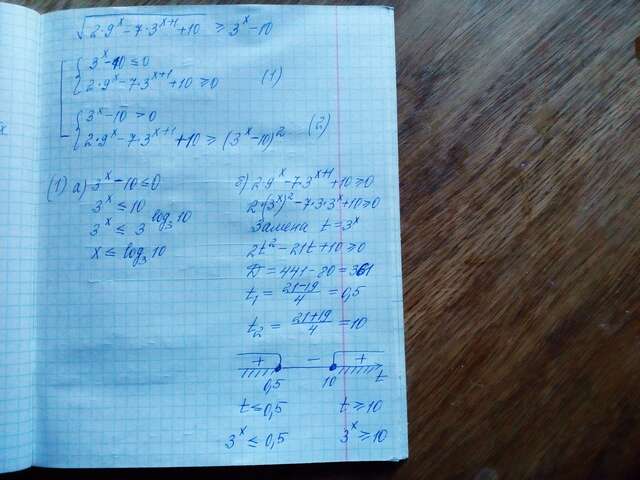 √(2·9^x − 7·3^(x+1) + 10) ≥ 3^x − 10
3^x − 10 ≤ 0
2·9^x − 7·3^(x+1) + 10 ≥ 0 (1)
3^x − 10 > 0
2·9^x − 7·3^(x+1) + 10 ≥ (3^x − 10)^2 (2)
(1) а) 3^x − 10 ≤ 0
3^x ≤ 10
3^x ≤ 3^(log₃10)
x ≤ log₃10
б) 2·9^x − 7·3^(x+1) + 10 ≥ 0
2·(3^x)^2 − 7·3·3^x + 10 ≥ 0
Замена t = 3^x
2t^2 − 21t + 10 ≥ 0
D = 441 − 80 = 361
t₁ = (21−19)/4 = 0,5
t₂ = (21+19)/4 = 10
+ − +
0,5 10 t
t ≤ 0,5 t ≥ 10
3^x ≤ 0,5 3^x ≥ 10